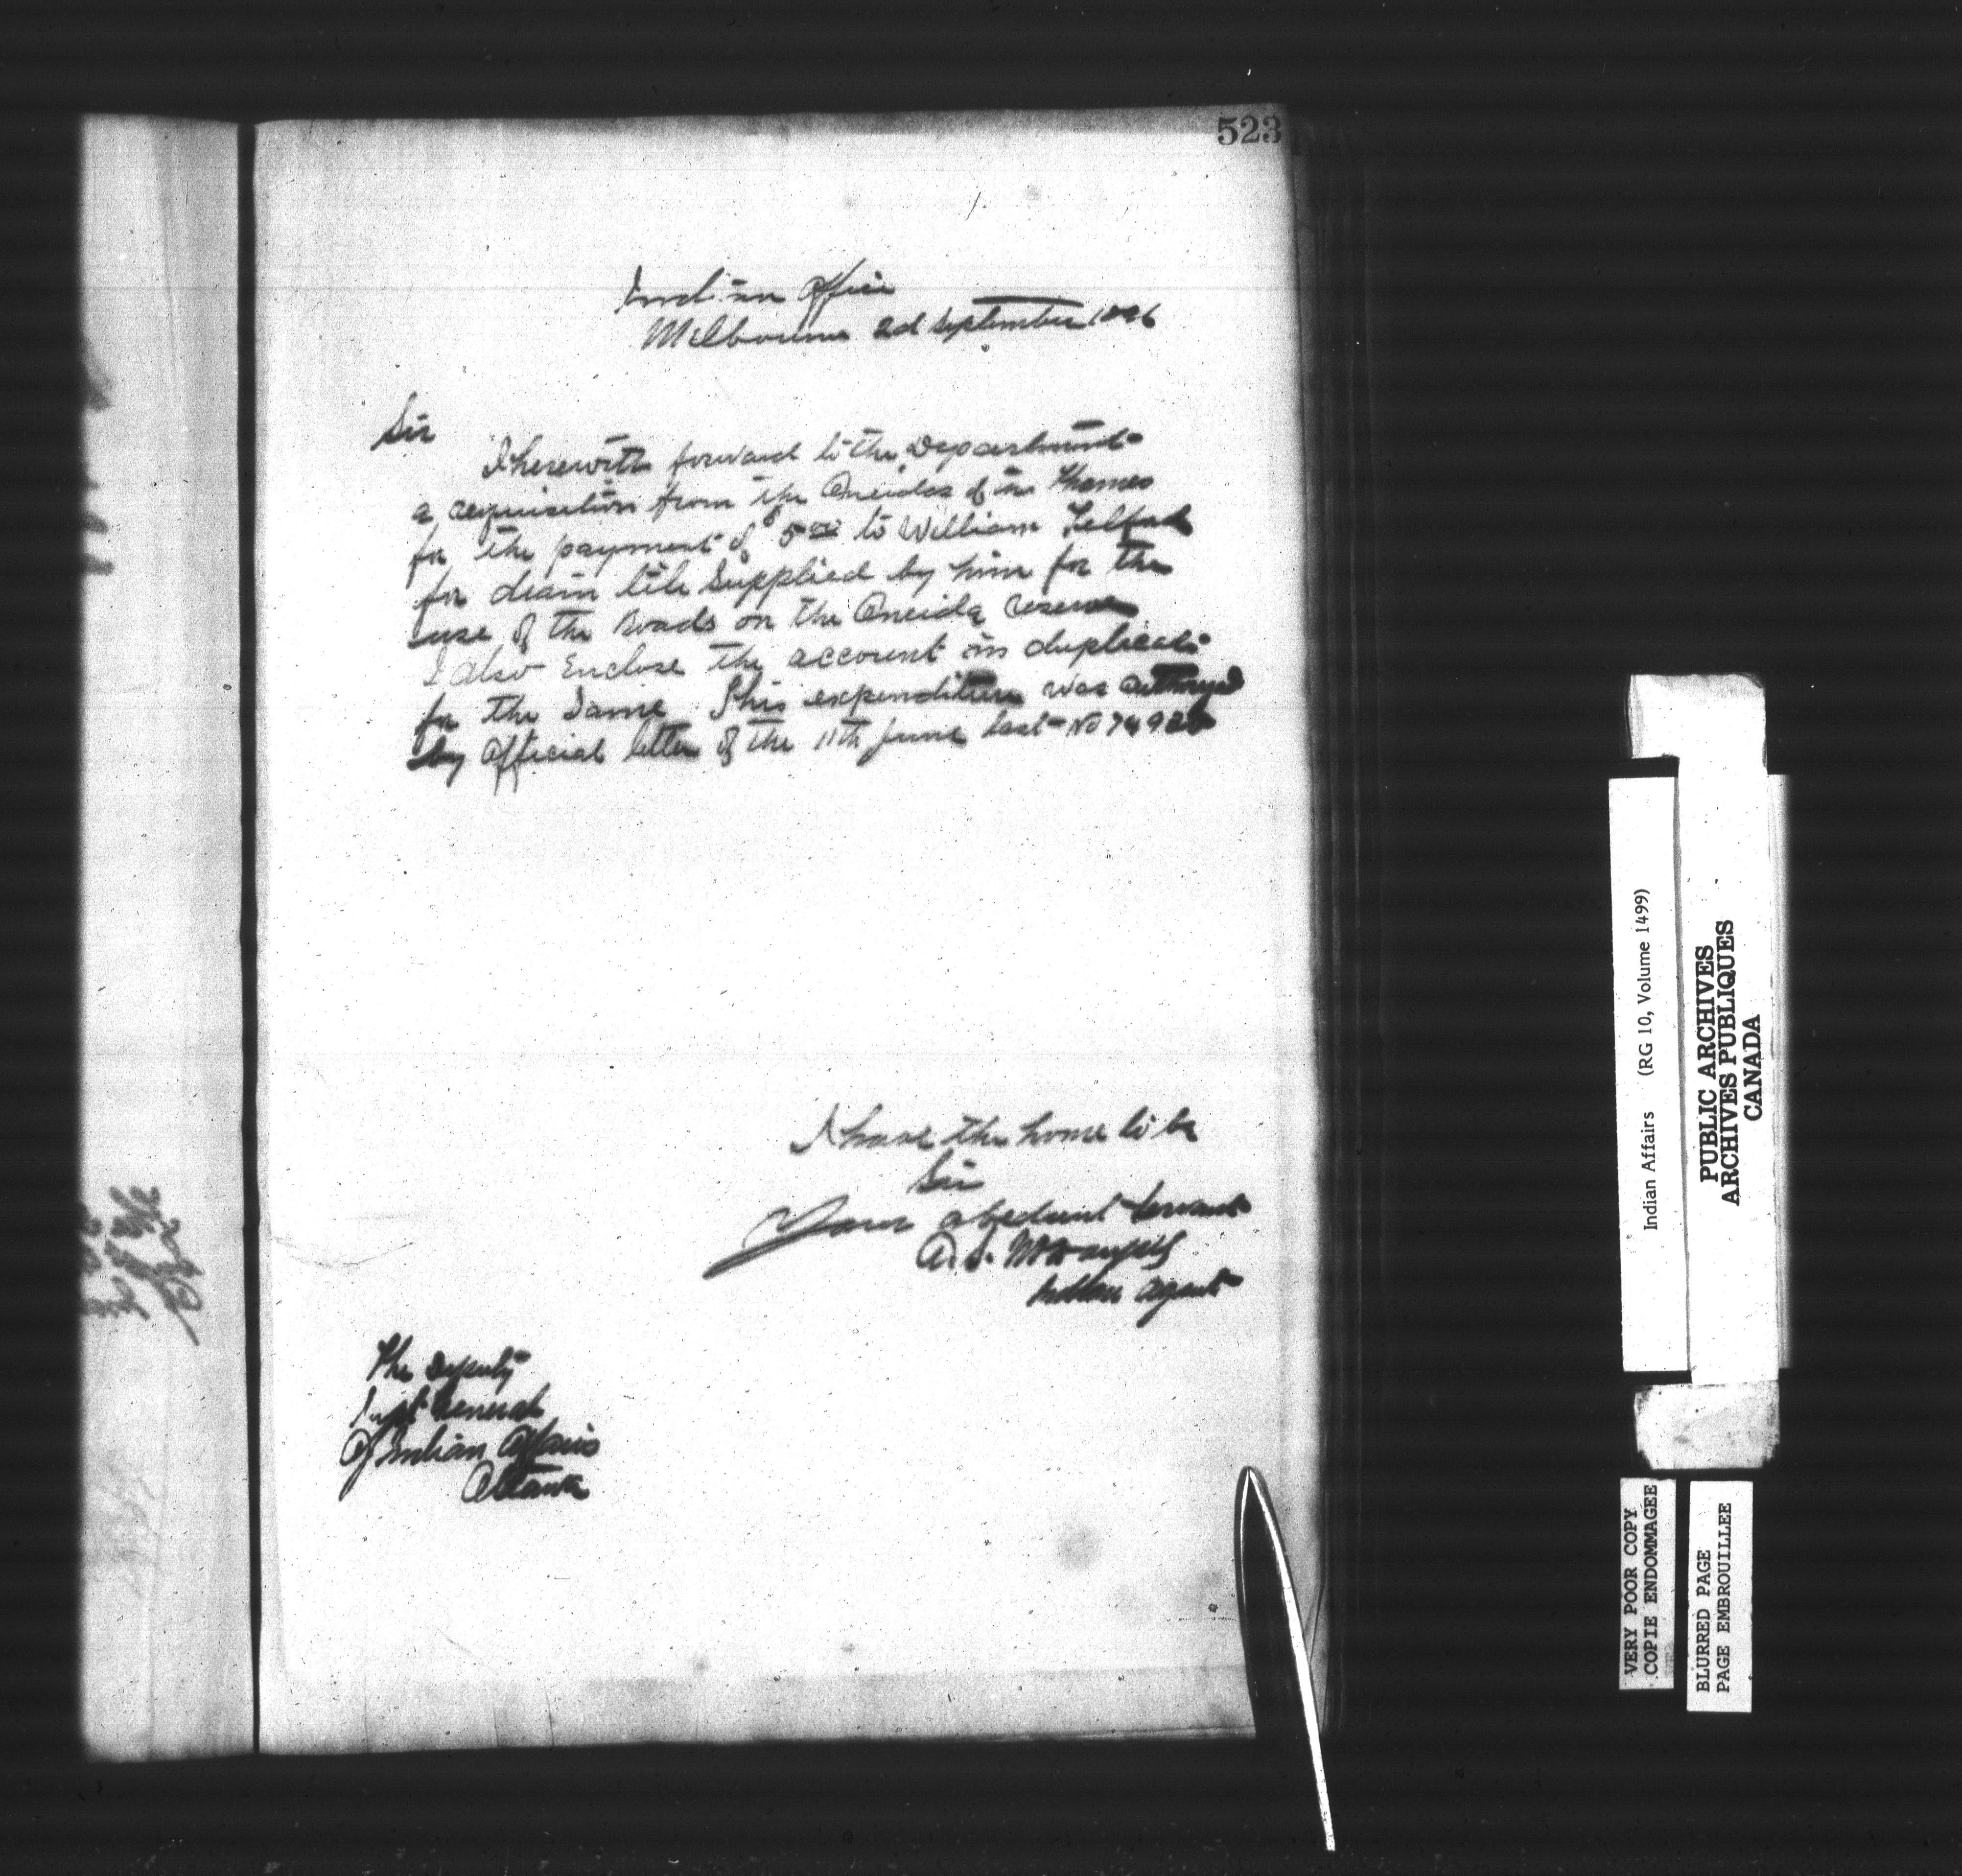 523
Indian Office
Melbourne 2d September 1896
Sir
I herewith forward to the Department
a requisition from the Oneidas of the Thames
for the payment of $5 00 to William Telford
for drain tile supplied by him for the
use of the roads on the Oneida reserve
I also Enclose the account in duplicate
for the same. This expenditure was
by official letter of the 11th June last No
I have the honor to be
Sir
Your obedient servant
A. S. McDougall
Indian Agent
The Deputy
Supt General
Of Indian Affairs
Ottawa
Indian Affairs (RG 10, Volume 1499)
PUBLIC ARCHIVES
ARCHIVES PUBLIQUES
CANADA
VERY POOR COPY
COPIE ENDOMMAGEE
BLURRED PAGE
PAGE EMBROUILLEE